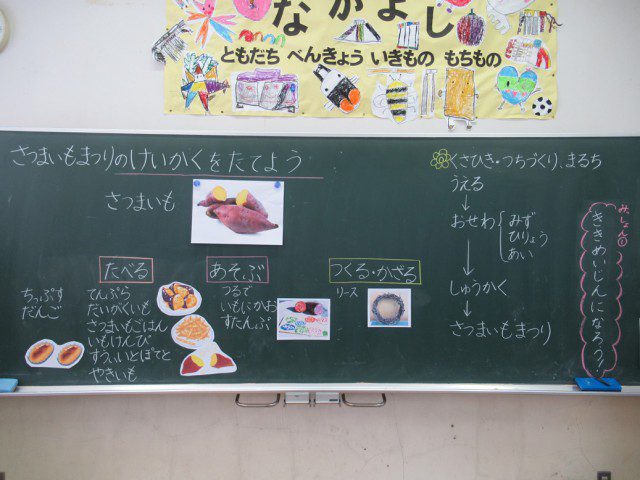 なかよし
ともだち べんきょう いきもの もちもの
さつまいもまつりのけいかくをたてよう
さつまいも
たべる
ちっぷす
だんご
てんぷら
だいがくいも
さつまいもごはん
いもけんぴ
すういいとぽてと
やきいも
あそぶ
つるで
いもにかお
すたんぷ
つくる・かざる
リース
くさひき・つちづくり、まるち
うえる
↓
おせわ
みず
ひりょう
あい
↓
しゅうかく
↓
さつまいもまつり
みっしょん①
ききめいじんになろう!